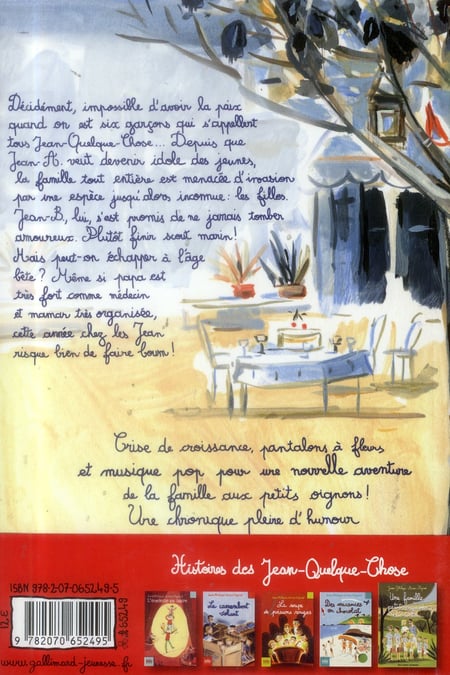 Décidément, impossible d'avoir la paix
quand on est six garçons qui s'appellent
tous Jean-Quelque-Chose... Depuis que
Jean-A. veut devenir idole des jeunes,
la famille tout entière est menacée d'invasion
par une espèce jusqu'alors inconnue : les filles.
Jean-B., lui, s'est promis de ne jamais tomber
amoureux. Plutôt finir scout marin !
Mais peut-on échapper à l'âge
bête ? Même si papa est
très fort comme médecin
et maman très organisée,
cette année chez les Jean
risque bien de faire boum !
Crise de croissance, pantalons à fleurs
et musique pop pour une nouvelle aventure
de la famille aux petits oignons !
Une chronique pleine d'humour
Histoires des Jean-Quelque-Chose
ISBN 978-2-07-065249-5
12 €
A 65249
9 782070 652495
www.gallimard-jeunesse.fr
L'omelette au sucre
Le camembert volant
La soupe de poissons rouges
Des vacances en chocolat
Une famille